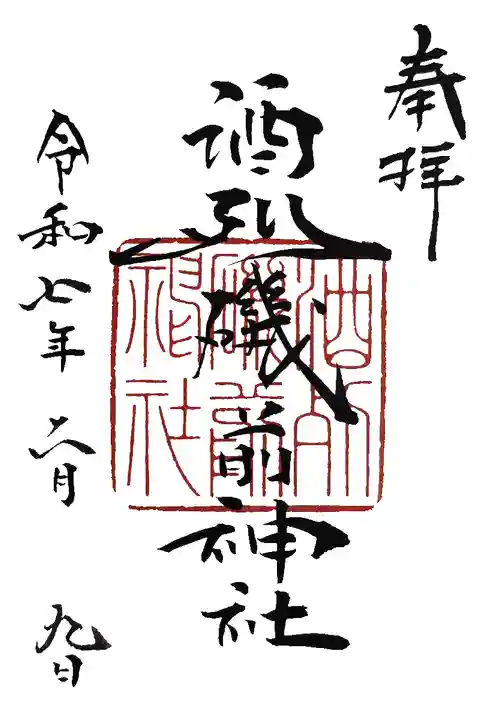 奉拝
酒列磯前神社
酒列
磯前
神社
令和七年 六月 九日